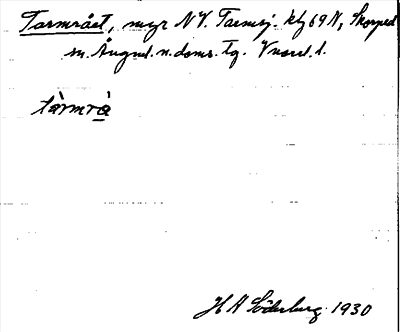 Tarmrået, myr N V. Tarmsj. kbg 69 N, Skorped
sn. Ångml. n. doms. tg. Vnorrl. l.
tàrmrà
H A Söderberg 1930